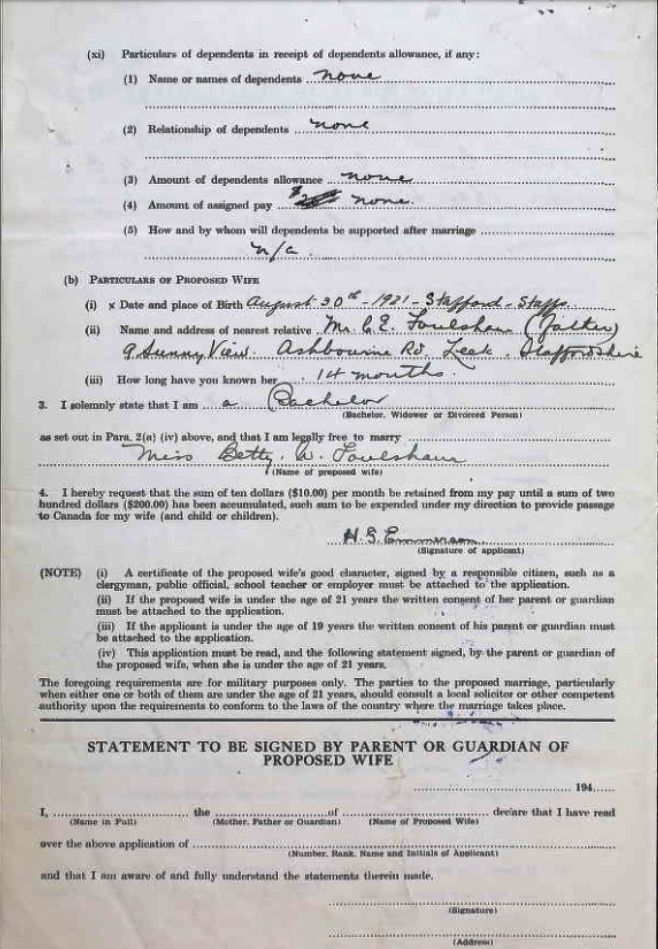 (xi) Particulars of dependents in receipt of dependents allowance, if any:
(1) Name or names of dependents none
(2) Relationship of dependents none
(3) Amount of dependents allowance none
(4) Amount of assigned pay none.
(5) How and by whom will dependents be supported after marriage
n/a.
(b) PARTICULARS OF PROPOSED WIFE
(i) x Date and place of Birth August 30th - 1921 - Stafford - Staffs.
(ii) Name and address of nearest relative Mr. C.E. Foulsham (Father)
9 Sunny View. Ashbourne Rd, Leek. Staffordshire
(iii) How long have you known her 14 months.
3. I solemnly state that I am a Bachelor
(Bachelor, Widower or Divorced Person)
as set out in Para. 2(a) (iv) above, and that I am legally free to marry
Miss Betty. W. Foulsham
(Name of proposed wife)
4. I hereby request that the sum of ten dollars ($10.00) per month be retained from my pay until a sum of two
hundred dollars ($200.00) has been accumulated, such sum to be expended under my direction to provide passage
to Canada for my wife (and child or children).
H.G. Emmerson
(Signature of applicant)
(NOTE) (i) A certificate of the proposed wife's good character, signed by a responsible citizen, such as a
clergyman, public official, school teacher or employer must be attached to the application.
(ii) If the proposed wife is under the age of 21 years the written consent of her parent or guardian
must be attached to the application.
(iii) If the applicant is under the age of 19 years the written consent of his parent or guardian must
be attached to the application.
(iv) This application must be read, and the following statement signed, by the parent or guardian of
the proposed wife, when she is under the age of 21 years.
The foregoing requirements are for military purposes only. The parties to the proposed marriage, particularly
when either one or both of them are under the age of 21 years, should consult a local solicitor or other competent
authority upon the requirements to conform to the laws of the country where the marriage takes place.
STATEMENT TO BE SIGNED BY PARENT OR GUARDIAN OF
PROPOSED WIFE
194
I, the of declare that I have read
(Name in Full) (Mother, Father or Guardian) (Name of Proposed Wife)
over the above application of
(Number, Rank, Name and Initials of Applicant)
and that I am aware of and fully understand the statements therein made.
(Signature)
(Address)